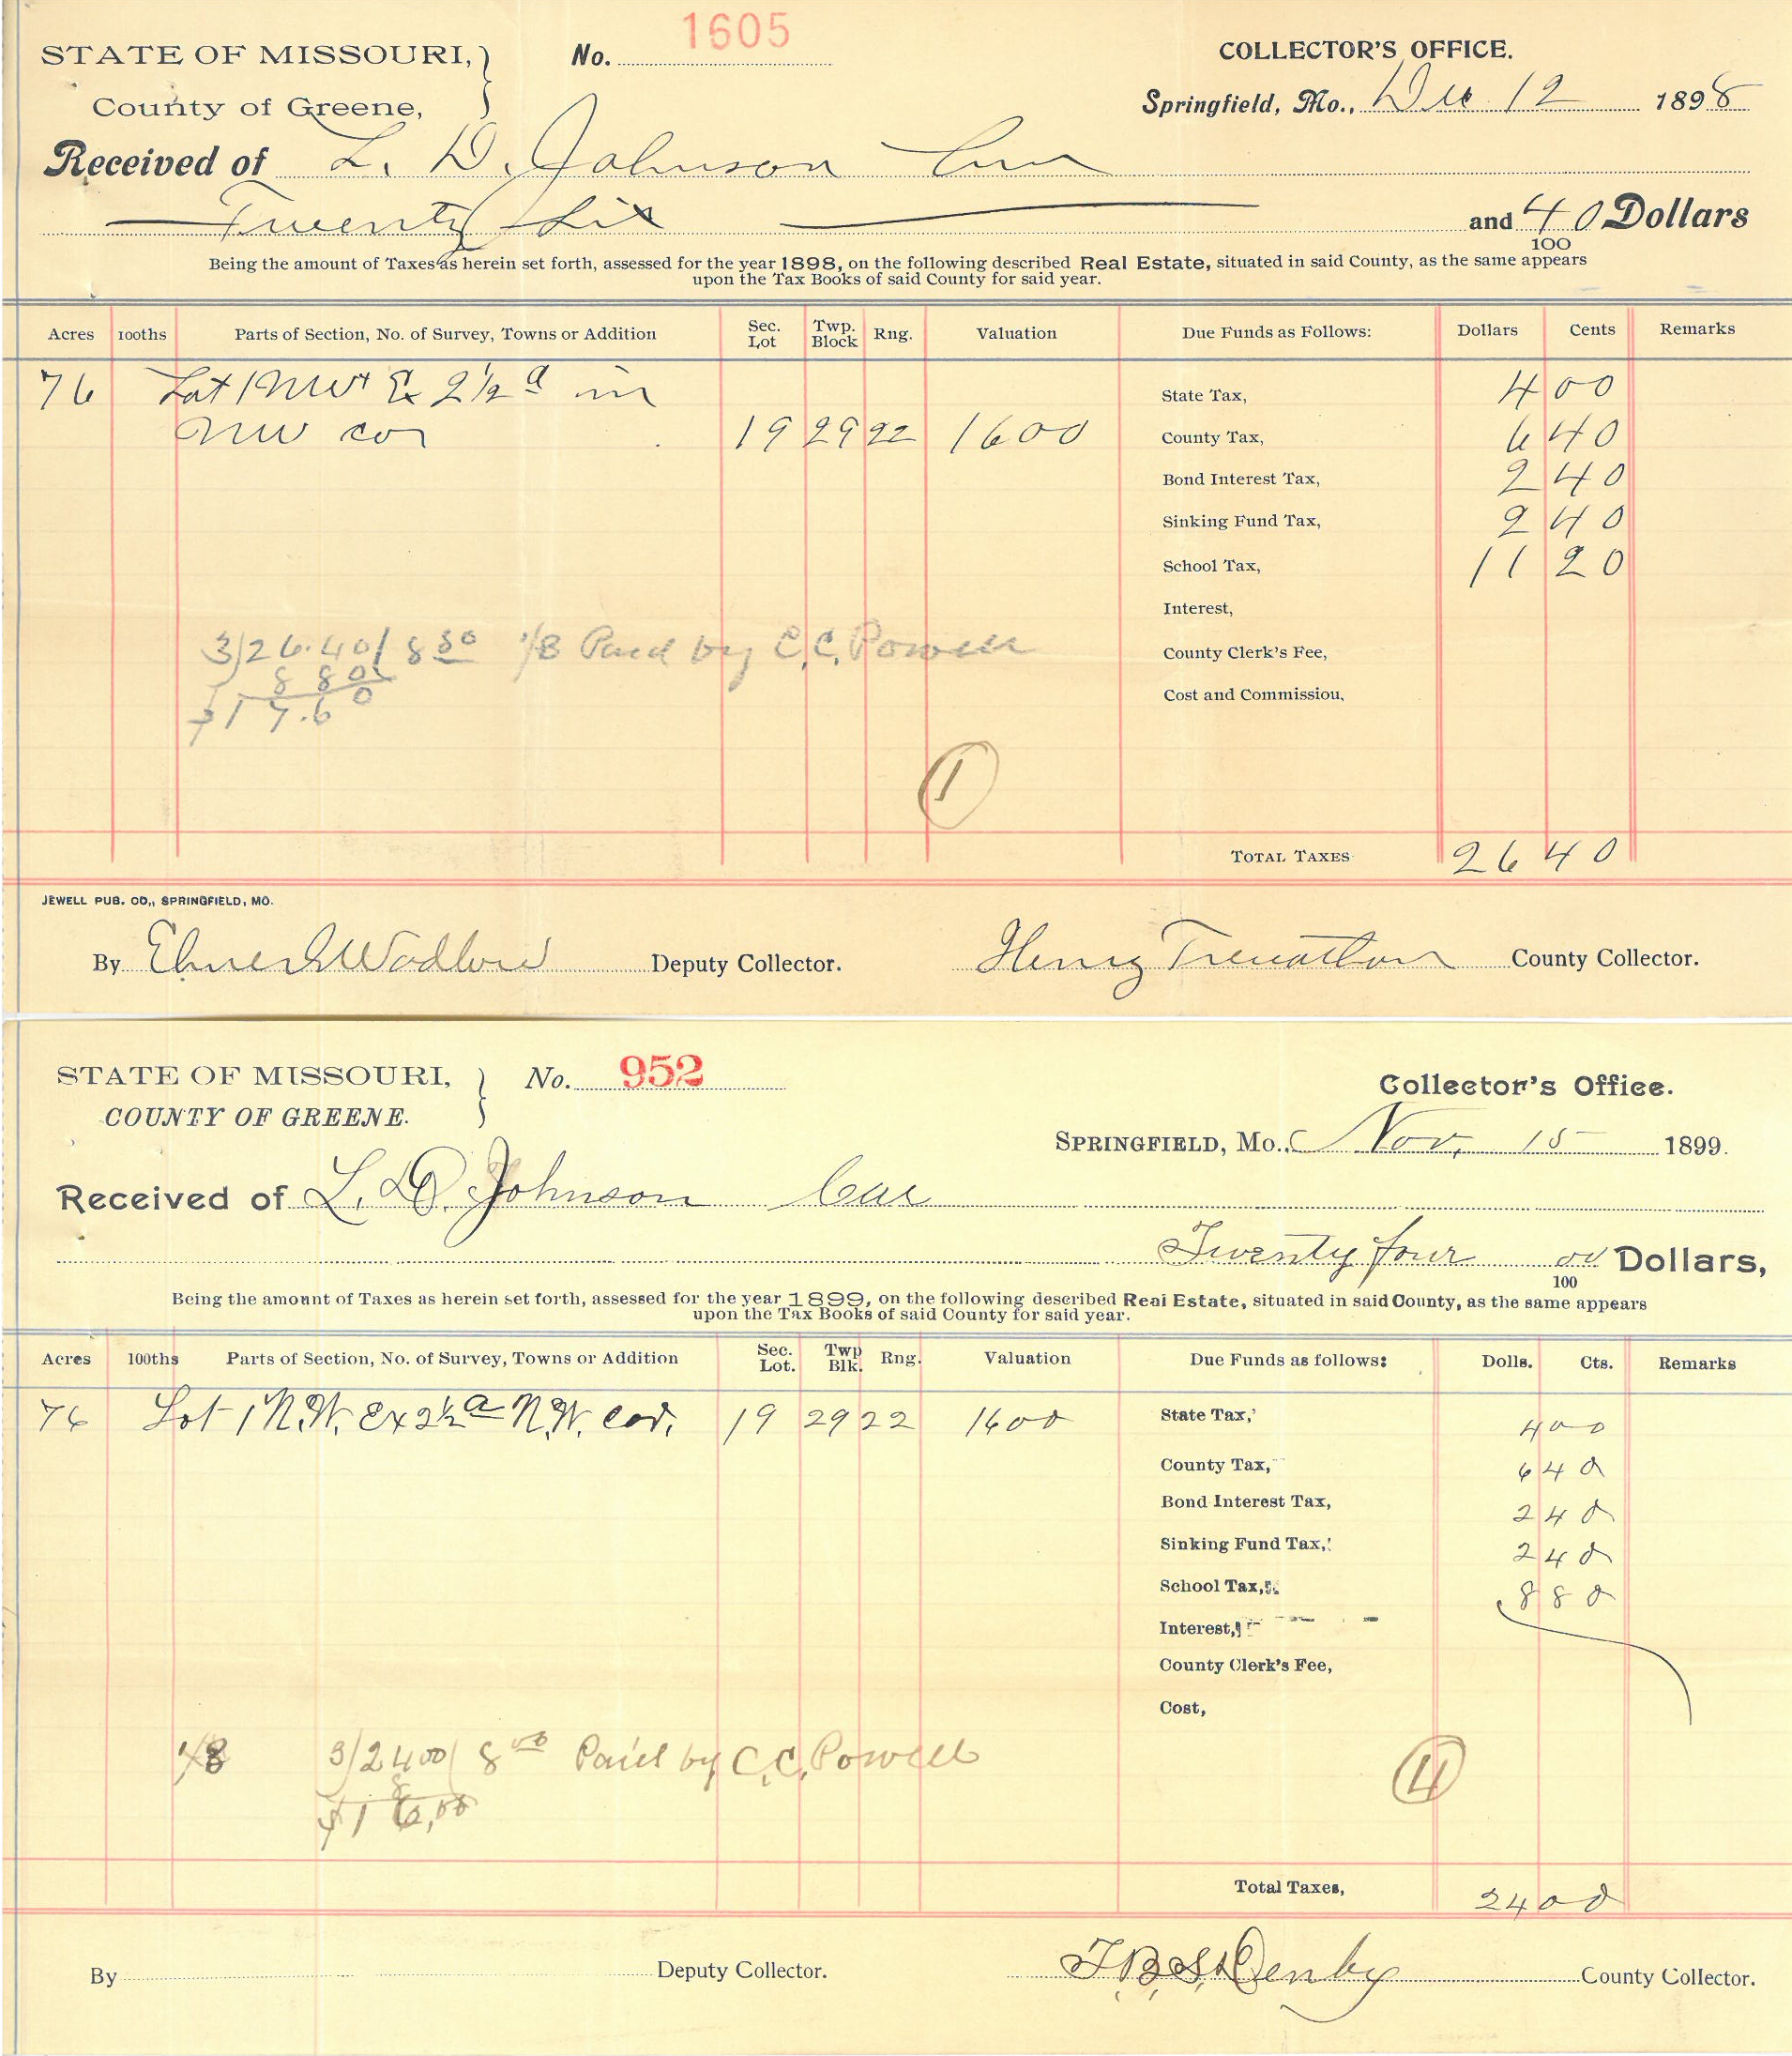 1605
STATE OF MISSOURI, } No. COLLECTOR'S OFFICE.
County of Greene, Springfield, Mo., Dec 12 1898
Received of L. D. Johnson
Twenty Six and 40 Dollars
100
Being the amount of Taxes as herein set forth, assessed for the year 1898, on the following described Real Estate, situated in said County, as the same appears
upon the Tax Books of said County for said year.
Acres 100ths Parts of Section, No. of Survey, Towns or Addition Sec. Lot Twp. Block Rng. Valuation Due Funds as Follows: Dollars Cents Remarks
76 Lot 1 NW Ex 2½ a in State Tax, 4 00
NW cor 19 29 22 1600 County Tax, 6 40
Bond Interest Tax, 2 40
Sinking Fund Tax, 2 40
School Tax, 11 20
Interest,
3/26.40/ 8 80 1/3 Paid by C.C. Powell County Clerk's Fee,
8 80
Cost and Commission,
17.60
1
TOTAL TAXES 26 40
JEWELL PUB. CO., SPRINGFIELD, MO.
By Deputy Collector. Henry County Collector.
STATE OF MISSOURI, } No. 952 Collector's Office.
COUNTY OF GREENE. SPRINGFIELD, MO., Nov. 15 1899.
Received of L. D. Johnson Cur
Twenty four 00 Dollars,
100
Being the amount of Taxes as herein set forth, assessed for the year 1899, on the following described Real Estate, situated in said County, as the same appears
upon the Tax Books of said County for said year.
Acres 100ths Parts of Section, No. of Survey, Towns or Addition Sec. Lot. Twp Blk. Rng. Valuation Due Funds as follows: Dolls. Cts. Remarks
76 Lot 1 N.W. Ex 2½ a N.W. cor. 19 29 22 1600 State Tax, 4 00
County Tax, 6 40
Bond Interest Tax, 2 40
Sinking Fund Tax, 2 40
School Tax, 8 80
Interest,
County Clerk's Fee,
Cost,
1/3 3/24 00/ 8 00 Paid by C.C. Powell 4
8
$16.00
Total Taxes, 24 00
By Deputy Collector. County Collector.